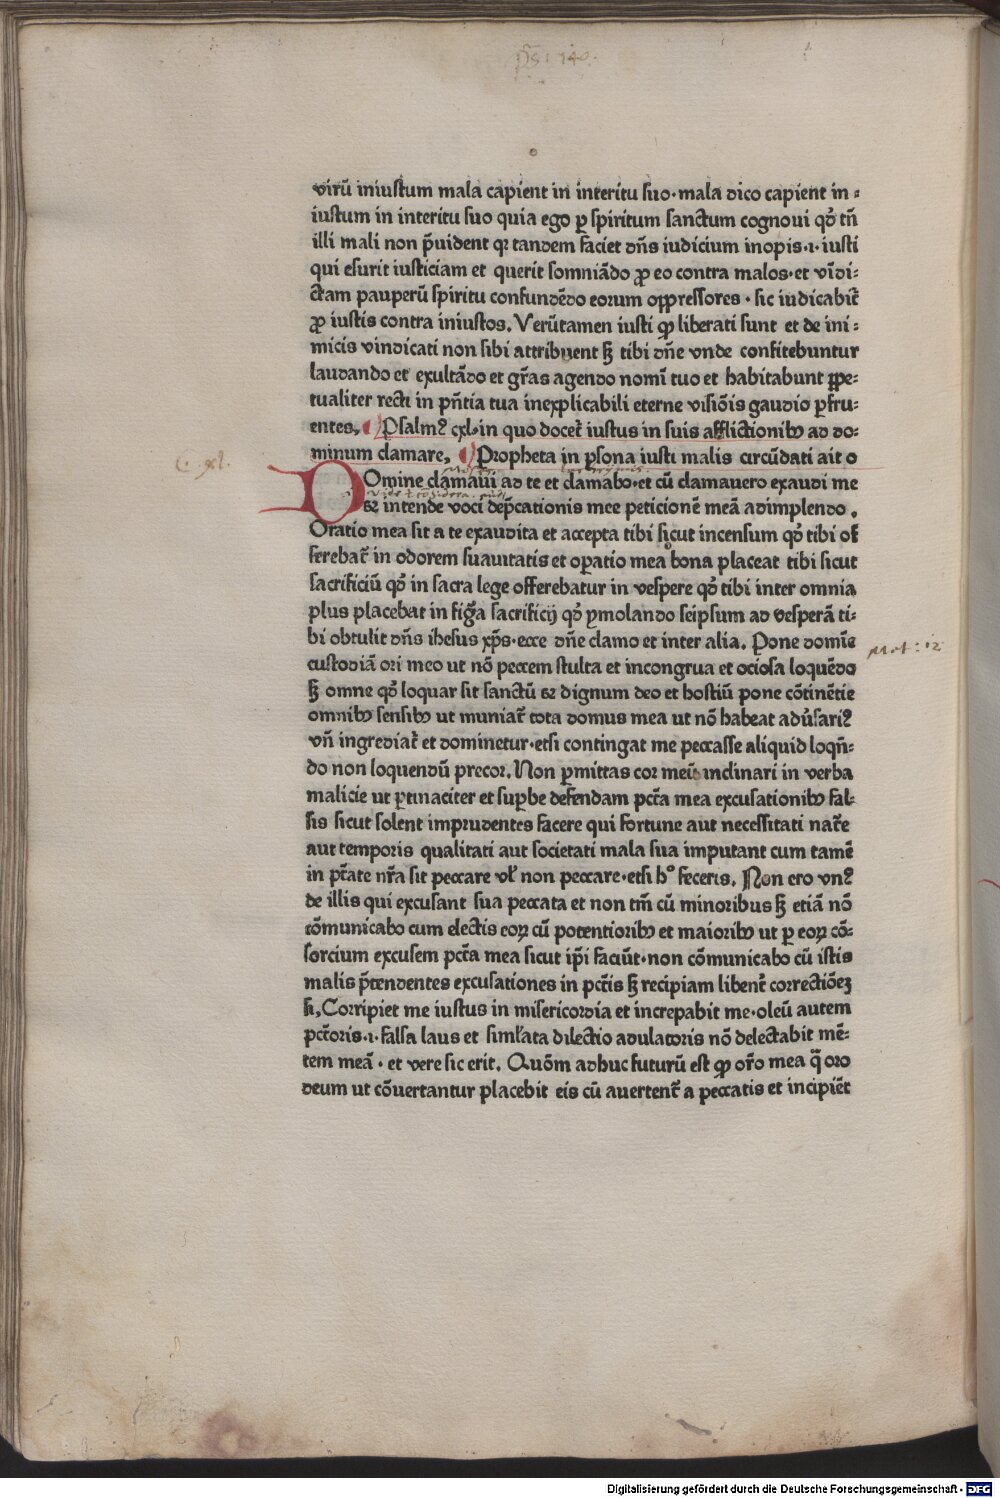 ps: 140.
virū iniustum mala capient in interitu suo·mala dico capient in⸗
iustum in interitu suo quia ego ꝑ spiritum sanctum cognoui qď tñ
illi mali non p̄uident qꝛ tandem faciet dñs iudicium inopis·i·iusti
qui esurit iusticiam et querit somniādo ꝓ eo contra malos·et vīdi⸗
ctam pauperū spiritu confundēdo eorum oppressores · sic iudicabit᷑
ꝓ iustis contra iniustos. Verūtamen iusti ꝙ liberati sunt et de ini⸗
micis vindicati non sibi attribuent sꝫ tibi dñe vnde confitebuntur
laudando et exultādo et gr̄as agendo nomī tuo et habitabunt ꝑpe⸗
tualiter recti in pn̄tia tua inexplicabili eterne visiōis gaudio ꝑfru⸗
entes. Psalmꝰ cxl·in quo docet᷑ iustus in suis afflictionibꝫ ad do⸗
minum clamare. Propheta in ꝑsona iusti malis circūdati ait o
C. xl.
DOmine clamaui ad te et clamabo·et cū clamauero exaudi me
⁊ intende voci dep̄cationis mee peticionē meā adimplendo .
Oratio mea sit a te exaudita et accepta tibi sicut incensum qď tibi of
ferebat᷑ in odorem suauitatis et oꝑatio mea bona placeat tibi sicut
sacrificiū qď in sacra lege offerebatur in vespere qď tibi inter omnia
plus placebat in figr̄a sacrificij qď ymolando seipsum ad vesperā ti⸗
bi obtulit dñs ihesus xp̄s·ecce dñe clamo et inter alia. Pone domīe
custodiā ori meo ut nō peccem stulta et incongrua et ociosa loquēdo
sꝫ omne qď loquar sit sanctū ⁊ dignum deo et hostiū pone cōtinētie
omnibꝫ sensibꝫ ut muniat᷑ tota domus mea ut nō habeat adūsariꝰ
vñ ingrediat᷑ et dominetur·etsi contingat me peccasse aliquid loqñ⸗
do non loquendū precor. Non ꝑmittas cor meū inclinari in verba
malicie ut ꝑtinaciter et suꝑbe defendam pctā mea excusationibꝫ fal⸗
sis sicut solent imprudentes facere qui fortune aut necessitati nat᷑e
aut temporis qualitati aut societati mala sua imputant cum tamē
in ptāte nr̄a sit peccare vl̄ non peccare·etsi hº feceris. Non ero vnꝰ
de illis qui excusant sua peccata et non tm̄ cū minoribus sꝫ etiā nō
cōmunicabo cum electis eoꝝ cū potentioribꝫ et maioribꝫ ut ꝑ eoꝝ cō⸗
sorcium excusem pctā mea sicut ip̄i faciūt·non cōmunicabo cū istis
malis p̄tendentes excusationes in pctīs sꝫ recipiam libent᷑ correctiōeꝫ
si. Corripiet me iustus in misericordia et increpabit me·oleū autem
pctōris·i·falsa laus et siml̄ata dilectio adulatoris nō delectabit mē⸗
tem meā · et vere sic erit. Quōm adhuc futurū est ꝙ or̄o mea qā oro
deum ut cōuertantur placebit eis cū auertent᷑ a peccatis et incipiēt
Digitalisierung gefördert durch die Deutsche Forschungsgemeinschaft - DFG